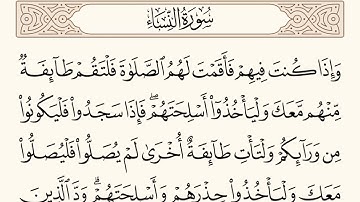 سُورَةُ النِّسَاءِ
وَإِذَا كُنتَ فِيهِمْ فَأَقَمْتَ لَهُمُ ٱلصَّلَوٰةَ فَلْتَقُمْ طَآئِفَةٌ
مِّنْهُم مَّعَكَ وَلْيَأْخُذُوٓا۟ أَسْلِحَتَهُمْ ۖ فَإِذَا سَجَدُوا۟ فَلْيَكُونُوا۟
مِن وَرَآئِكُمْ وَلْتَأْتِ طَآئِفَةٌ أُخْرَىٰ لَمْ يُصَلُّوا۟ فَلْيُصَلُّوا۟
مَعَكَ وَلْيَأْخُذُوا۟ حِذْرَهُمْ وَأَسْلِحَتَهُمْ ۗ وَدَّ ٱلَّذِينَ